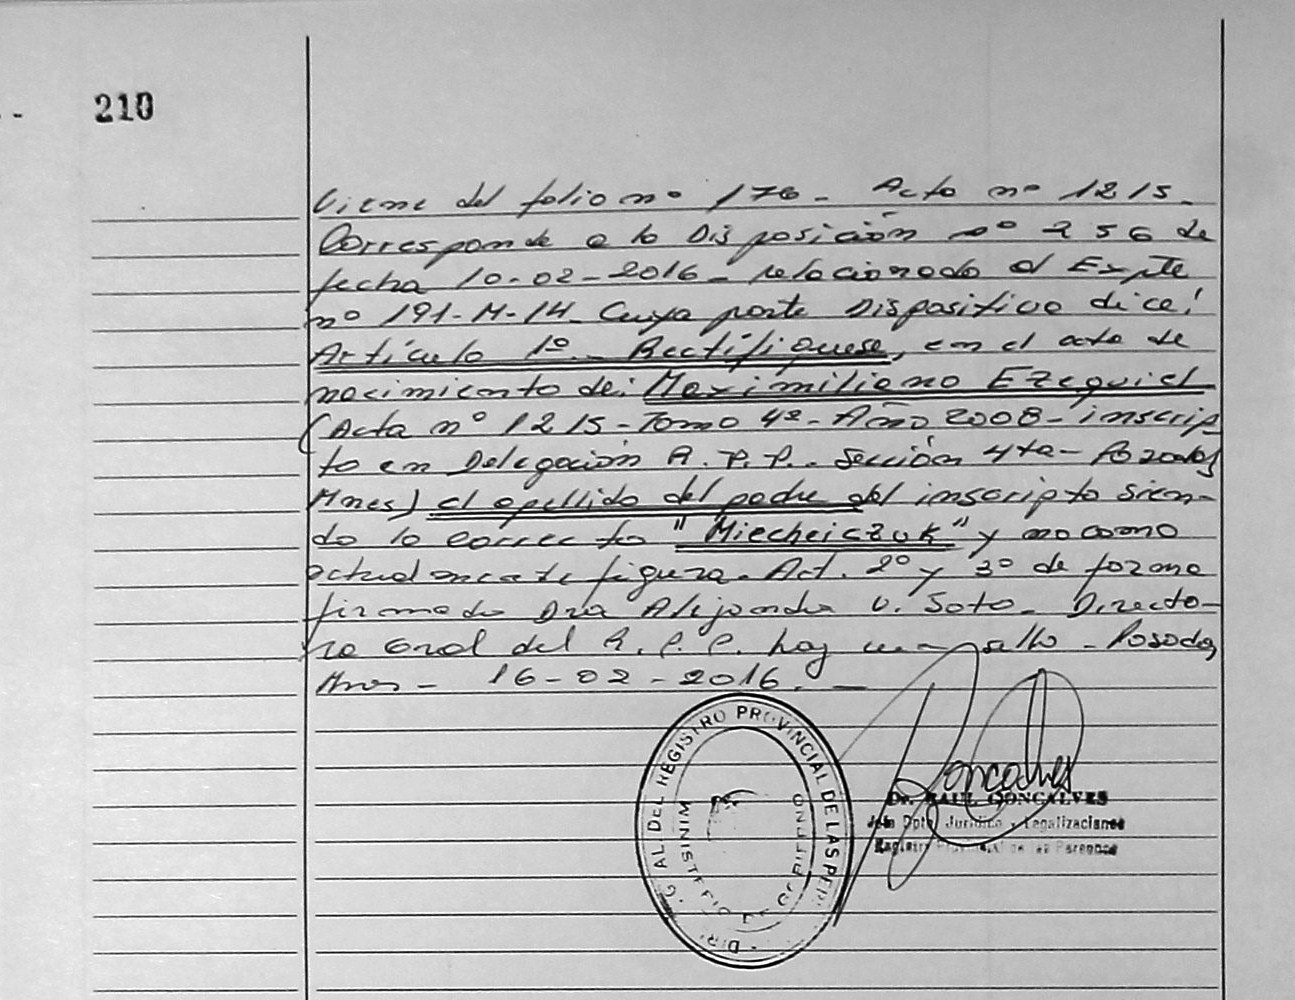 210
Viene del folio nº 176 - Acta nº 1215.
Corresponde a la Disposición nº 256 de
fecha 10-02-2016 - relacionado al Expte
nº 191-M-14 - Cuya parte Dispositiva dice:
Artículo 1º - Rectifíquese, en el acta de
nacimiento de: Maximiliano Ezequiel
(Acta nº 1215 - Tomo 4º - Año 2008 - inscrip
to en Delegación R.P.P. - Sección 4ta - Pozadas
Mnes) el apellido del padre del inscripto sien-
do lo correcto "Miecheiczuk" y no como
actualmente figura - Art. 2º y 3º de forma
firmado Dra Alejandra V. Soto - Directo-
ra Gral del R.P.P. hay un sello - Posadas
Mnes - 16-02-2016. -
DIR. G AL DEL REGISTRO PROVINCIAL DE LAS PER
MINISTERIO DE GOBIERNO
Dr. RAUL GONCALVES
Jefe Dpto. Jurídico y Legalizaciones
Registro Provincial de las Personas